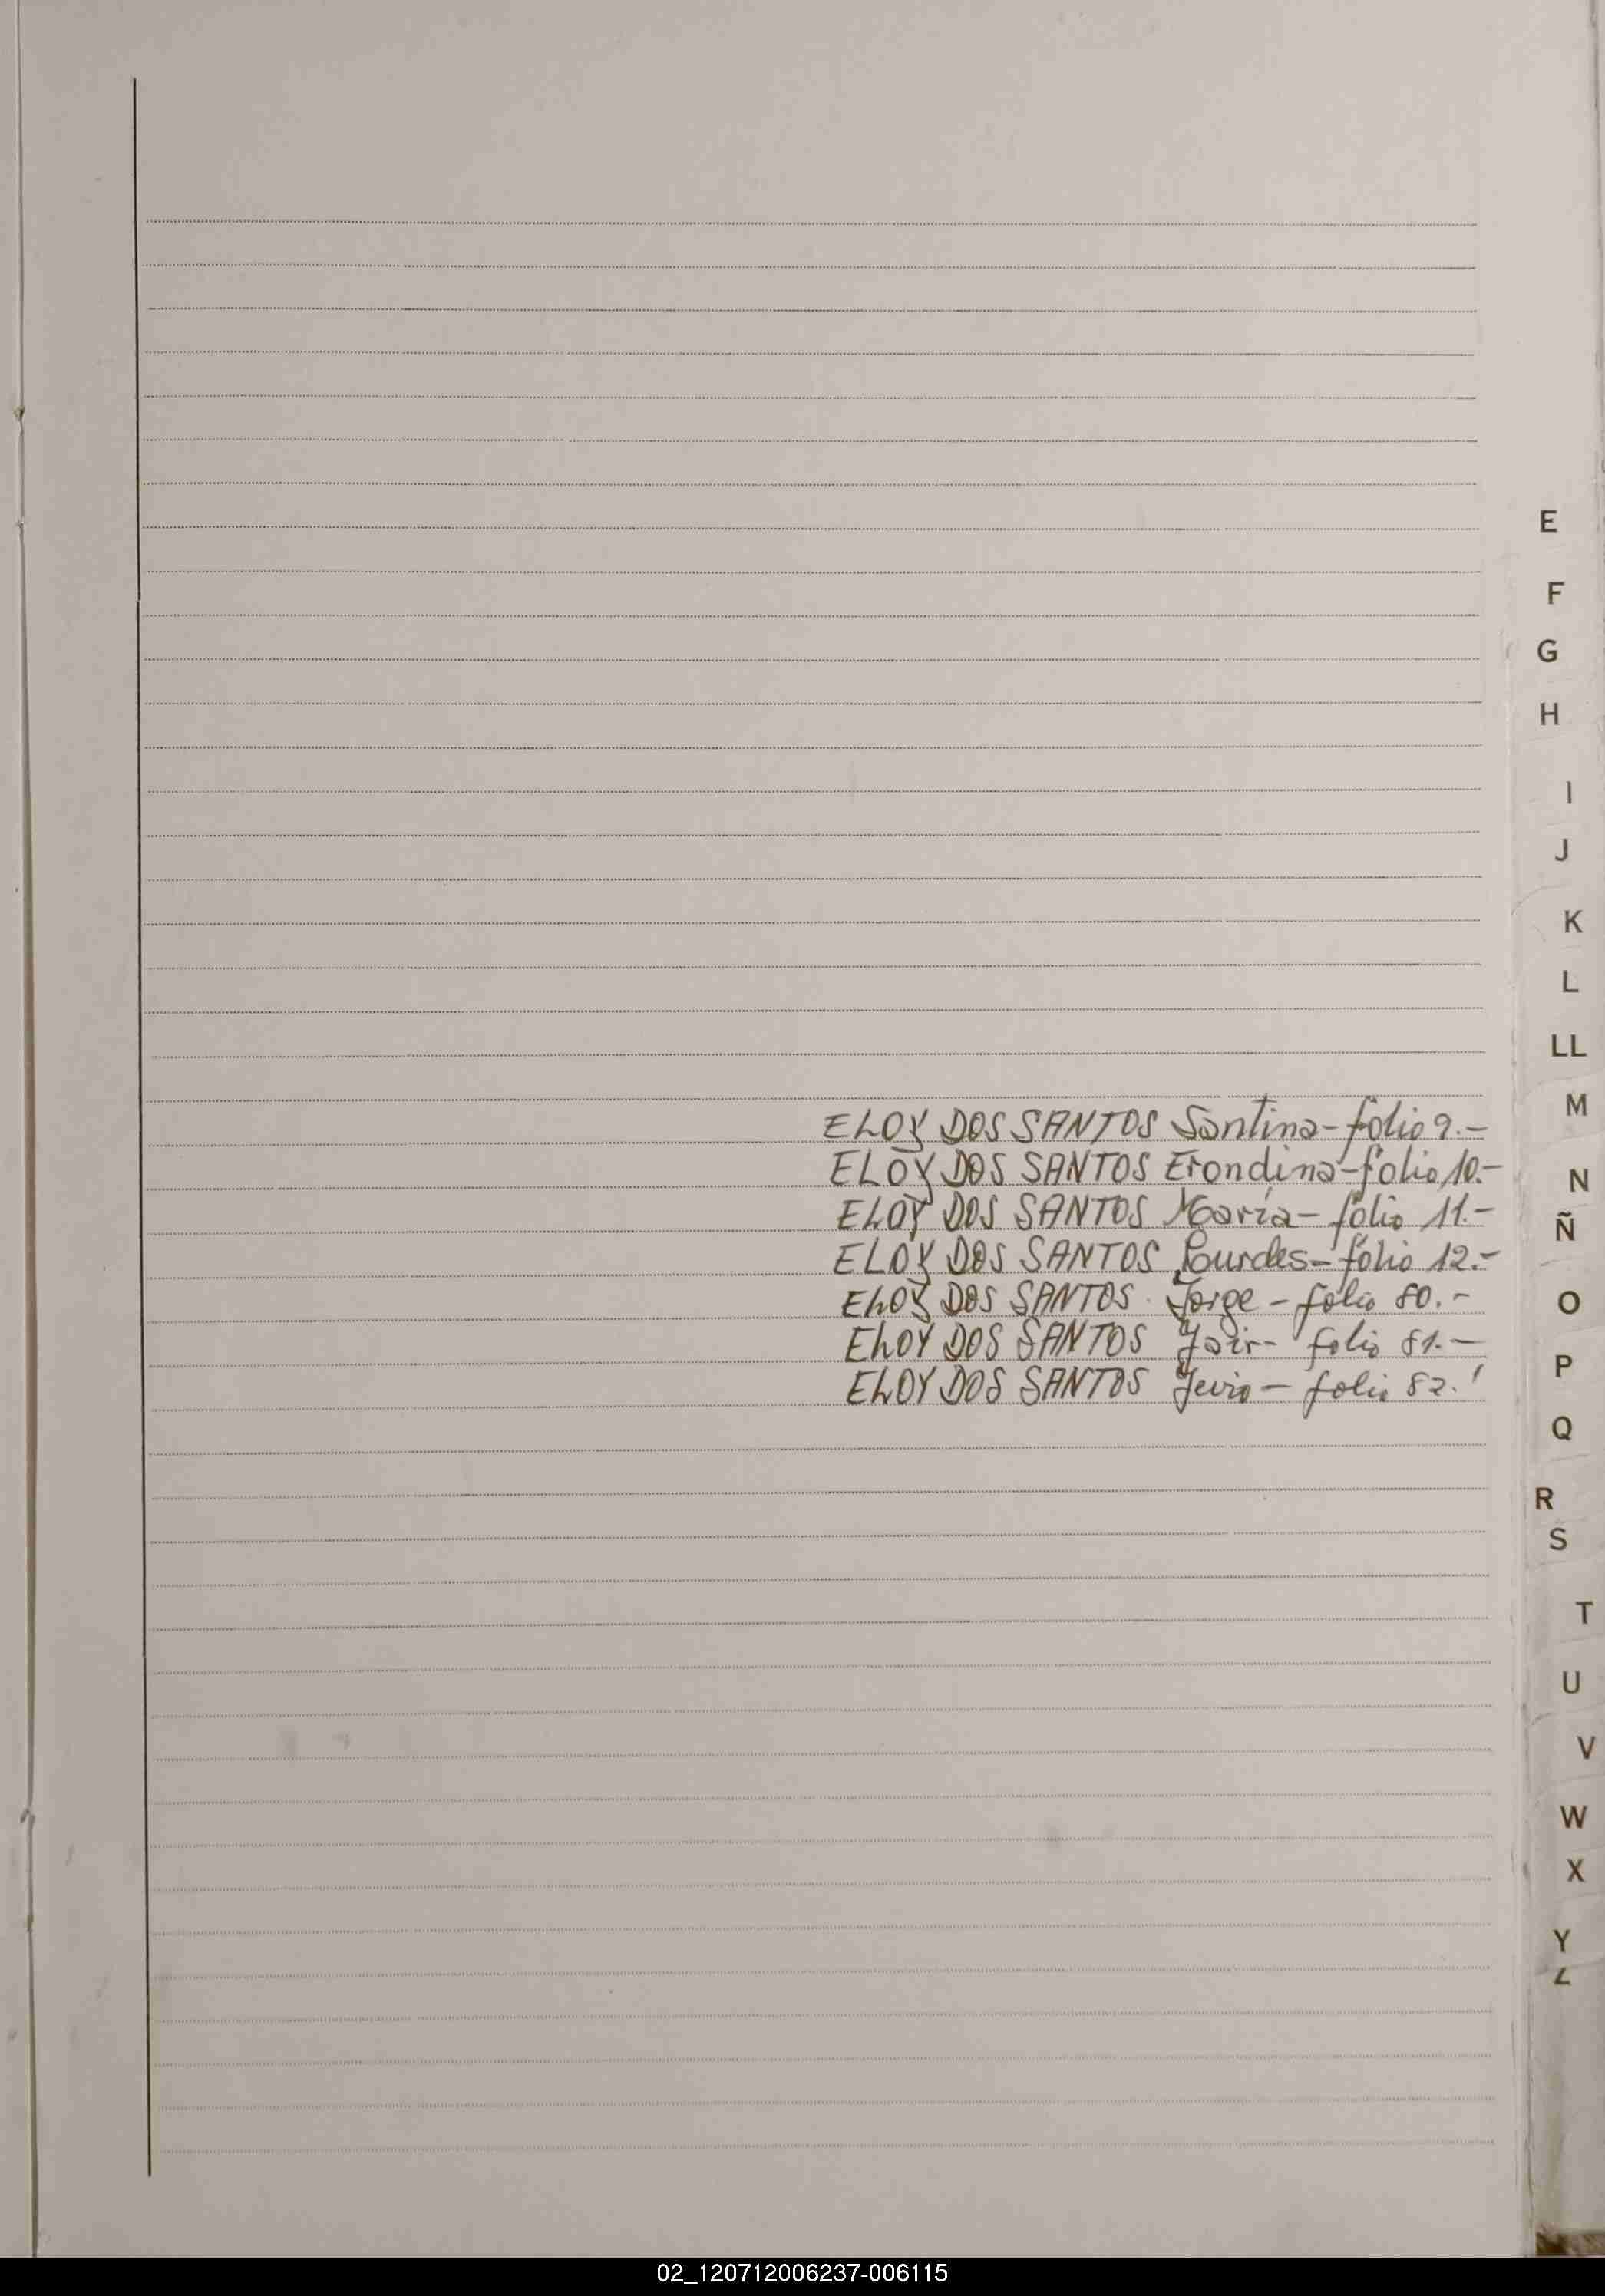 E
F
G
H
I
J
K
L
LL
M
ELOY DOS SANTOS Santina - folio 9.-
ELOY DOS SANTOS Erondina - folio 10.-
ELOY DOS SANTOS María - folio 11.-
ELOY DOS SANTOS Lourdes - folio 12.-
ELOY DOS SANTOS Jorge - folio 80.-
ELOY DOS SANTOS Jair - folio 81.-
ELOY DOS SANTOS - folio 82.
N
Ñ
O
P
Q
R
S
T
U
V
W
X
Y
Z
02_120712006237-006115